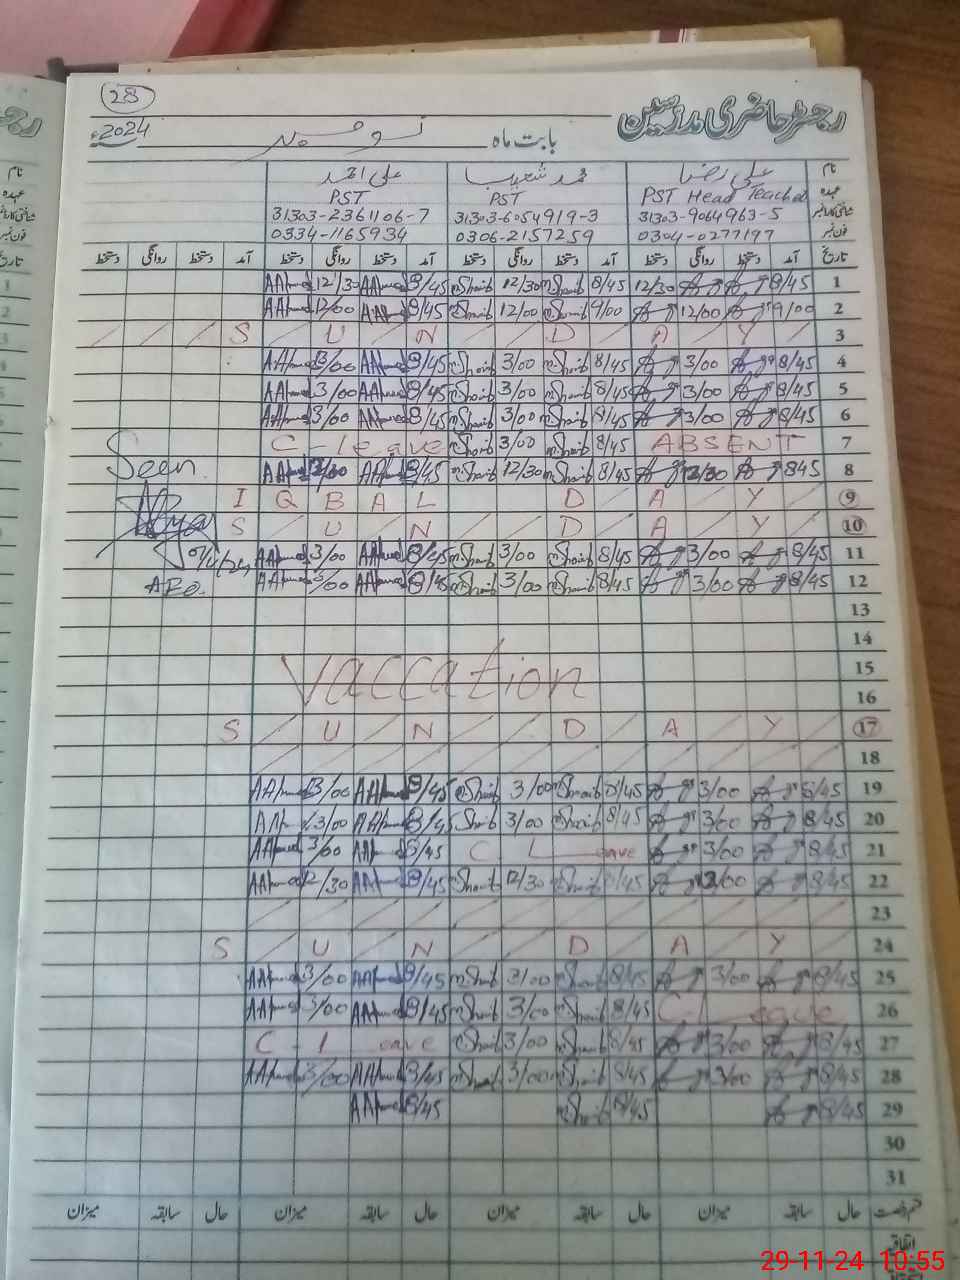 28
رجسٹر حاضری مدرسین
بابت ماہ نومبر 2024ء
نام علی رضا محمد شعیب علی احمد
عہدہ PST Head Teacher PST PST
31303-9064963-5 31303-6054919-3 31303-2361106-7
فون نمبر 0304-0277197 0306-2157259 0334-1165934
تاریخ آمد دستخط روانگی دستخط آمد دستخط روانگی دستخط آمد دستخط روانگی دستخط آمد دستخط روانگی دستخط
AAhmed 12/30 AAhmed 8/45 Shoaib 12/30 Shoaib 8/45 12/30 8/45 1
AAhmed 12/00 AAhmed 8/45 Shoaib 12/00 Shoaib 9/00 12/00 9/00 2
S U N D A Y 3
AAhmed 3/00 AAhmed 8/45 Shoaib 3/00 Shoaib 8/45 3/00 8/45 4
AAhmed 3/00 AAhmed 8/45 Shoaib 3/00 Shoaib 8/45 3/00 8/45 5
AAhmed 3/00 AAhmed 8/45 Shoaib 3/00 Shoaib 8/45 3/00 8/45 6
C - leave Shoaib 3/00 Shoaib 8/45 ABSENT 7
Seen
AAhmed AAhmed 8/45 Shoaib 12/30 Shoaib 8/45 845 8
I Q B A L D A Y 9
S U N D A Y 10
AAhmed 3/00 AAhmed 8/45 Shoaib 3/00 Shoaib 8/45 3/00 8/45 11
AEO.
AAhmed 3/00 AAhmed 8/45 Shoaib 3/00 Shoaib 8/45 3/00 8/45 12
13
14
Vaccation 15
16
S U N D A Y 17
18
AAhmed 3/00 AAhmed 8/45 Shoaib 3/00 Shoaib 8/45 3/00 8/45 19
AAhmed 3/00 AAhmed 8/45 Shoaib 3/00 Shoaib 8/45 3/00 8/45 20
AAhmed 3/00 AAhmed 8/45 C Leave 3/00 8/45 21
AAhmed 12/30 AAhmed 8/45 Shoaib 12/30 Shoaib 8/45 8/45 22
23
S U N D A Y 24
AAhmed 3/00 AAhmed 8/45 Shoaib 3/00 Shoaib 8/45 3/00 8/45 25
AAhmed 3/00 AAhmed 8/45 Shoaib 3/00 Shoaib 8/45 C-leave 26
C - leave Shoaib 3/00 Shoaib 8/45 3/00 8/45 27
AAhmed 3/00 AAhmed 8/45 Shoaib 3/00 Shoaib 8/45 3/00 8/45 28
AAhmed 8/45 Shoaib 8/45 8/45 29
30
31
قسم رخصت حال سابقہ میزان حال سابقہ میزان حال سابقہ میزان حال سابقہ میزان
اتفاقیہ
29-11-24 10:55